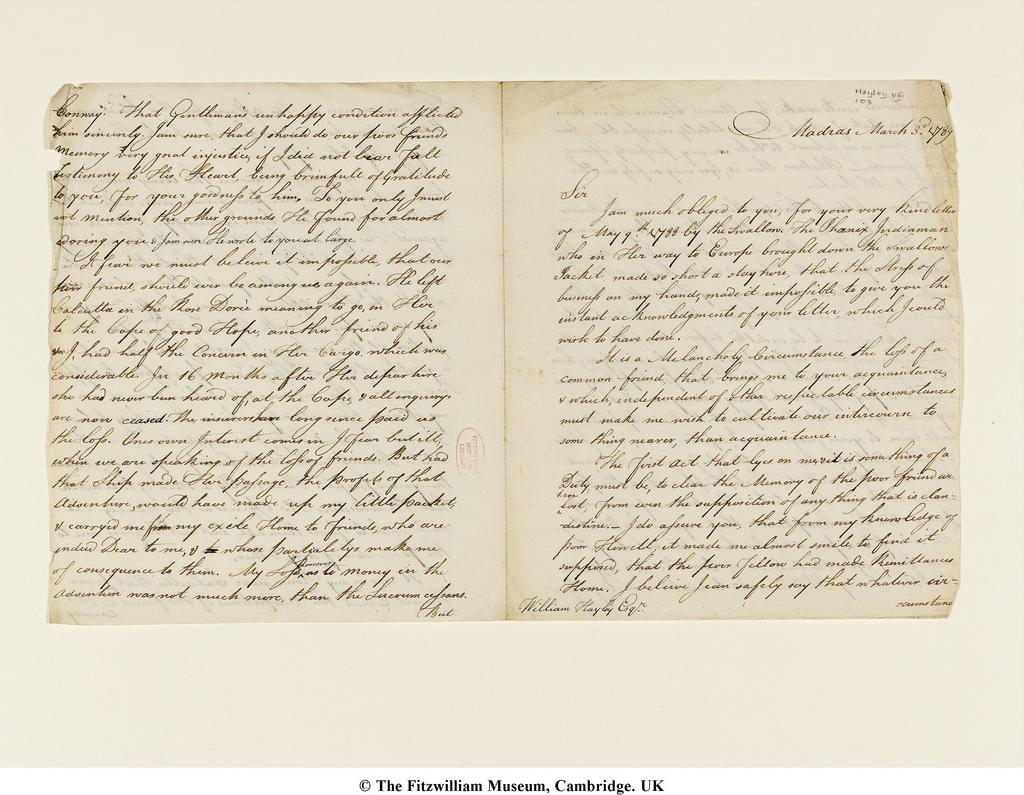 Conway. That Gentleman's unhappy condition afflicted
him sincerely. I am sure, that I should do our poor friends
Memory very great injustice, if I did not bear full
testimony to His Heart, being brimfull of Gratitude
to you, for your goodness to him, To you only I must
not mention, the other grounds He found for almost
adoring you & I am sure He wrote to you at large.
I fear we must believe it impossible, that our
poor friend, should ever be among us again. He left
Calcutta in the Rose Doreé meaning to go, in Her
to the Cape of good Hope, another friend of his
& I, had half the Concern in Her Cargo, which was
considerable. In 16 Months after Her departure
she had never been heard of, at, the Cape, & all enquirys
are now ceased. The insurers have long since paid us
the loss. Ones own Interest comes in I fear but ill,
when we are speaking of the loss of friends. But had
that Ship made Her passage, the profits of that
Adventure, would have made up my little packet,
& carryed me from my exile Home to Friends, who are
indeed Dear to me, & whose partialitys make me
of consequence to them. My Loss, however as to money in the
Adventure was not much more, than the Lucrum cessans.
But
Hayley VIII
103
Madras March 3d. 1789
Sir
I am much obliged to you, for your very kind letter
of May 9th. 1788 by the Swallow. The Phœnix Indiaman
who in Her way to Europe brought down the Swallows
Packet made so short a stay here, that the Stress of
business on my hands, made it impossible, to give you the
instant acknowledgments of your letter, which I could
wish to have done.
It is a Melancholy Circumstance the loss of a
common friend, that brings me to your acquaintance,
& which, independent of other respectable circumstances
must make me wish to cultivate our intercourse to
some thing nearer, than acquaintance.
The first act that lyes on me, & it is something of a
Duty, must be, to clear the Memory of the poor friend we
have Lost, from even the supposition of any thing that is clan-
destine. I do assure you, that from my knowledge of
poor Howell, it made me almost smile, to find it
supposed, that the poor fellow had made Remittances
Home. I believe I can safely say that whatever cir-
William Hayley Esqr.
-cumstance
FITZWILLIAM
MUSEUM
© The Fitzwilliam Museum, Cambridge. UK